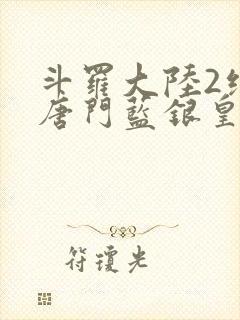 斗羅大陸2絕
唐門藍銀皇
符瓊光